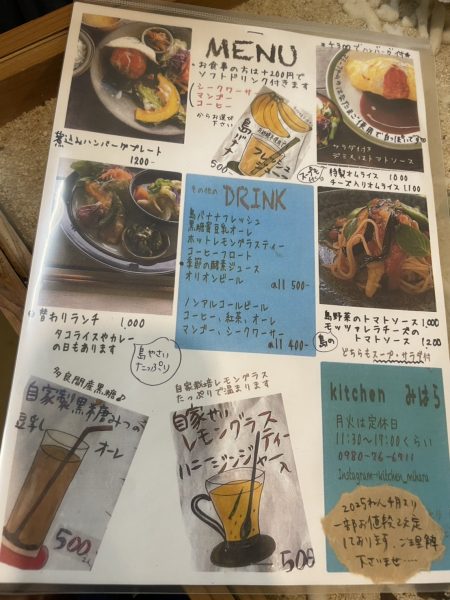 MENU
お食事の方は+200円で
ソフトドリンク付きます
シークワーサー
マンゴー
コーヒー
からお選び
下さい
+300でハンバーグ付
島バナナ
フレッシュ
ジュース
500
煮込みハンバーグプレート
1200-
サラダ付き
デミorトマトソース
特製オムライス 1000
チーズ入りオムライス 1100
その他の
DRINK
島バナナフレッシュ
黒糖蜜豆乳オーレ
ホットレモングラスティー
コーヒーフロート
季節の酵素ジュース
オリオンビール
all 500-
ノンアルコールビール
コーヒ、紅茶、オーレ
マンゴー、シークワーサー
all 400-
替わりランチ 1,000
タコライスやカレー
の日もあります
島やさい
たっぷり
島野菜のトマトソース 1,000
モッツァレラチーズの
トマトソース 1200
どちらもスープ・サラダ付
多良間産黒糖♪
自家製黒糖みつの
豆乳
オーレ
500
自家栽培レモングラス
たっぷりで温まります
自家せい
レモングラス
ティー
ハニージンジャー入
500
kitchen みはら
月火は定休日
11:30〜17:00くらい
0980-76-6711
Instagram-kitchen_mihara
2025ねん4月より
一部お値段改定
しております、ご理解
下さいませ....